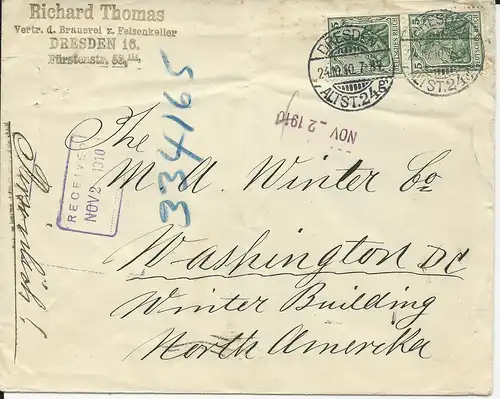 Richard Thomas
Vertr. d. Brauerei z. Felsenkeller
DRESDEN 16.
Fürstenstr. 53, III.
DRESDEN
ALTST. 24
DEUTSCHES REICH
5
NOV -2 1910
334165
RECEIVED
NOV 2 1910
The
M. A. Winter Co
Washington DC
Winter Building
North Amerika